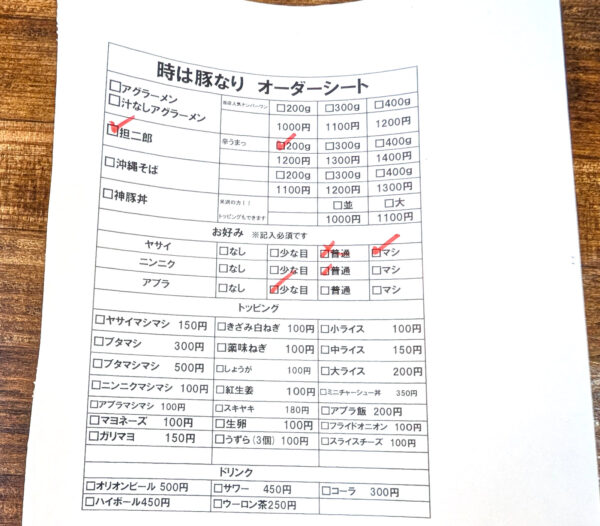 時は豚なり オーダーシート
□アグラーメン 当店人気ナンバーワン □200g □300g □400g
□汁なしアグラーメン 1000円 1100円 1200円
□担二郎 辛うまっ □200g □300g □400g
1200円 1300円 1400円
□沖縄そば □200g □300g □400g
1100円 1200円 1300円
□神豚丼 □並 □大
トッピングもできます 1000円 1100円
お好み ※記入必須です
ヤサイ □なし □少な目 □普通 □マシ
ニンニク □なし □少な目 □普通 □マシ
アブラ □なし □少な目 □普通 □マシ
トッピング
□ヤサイマシマシ 150円 □きざみ白ねぎ 100円 □小ライス 100円
□ブタマシ 300円 □薬味ねぎ 100円 □中ライス 150円
□ブタマシマシ 500円 □しょうが 100円 □大ライス 200円
□ニンニクマシマシ 100円 □紅生姜 100円 □ミニチャーシュー丼 350円
□アブラマシマシ 100円 □スキヤキ 180円 □アブラ飯 200円
□マヨネーズ 100円 □生卵 100円 □フライドオニオン 100円
□ガリマヨ 150円 □うずら(3個) 100円 □スライスチーズ 100円
ドリンク
□オリオンビール 500円 □サワー 450円 □コーラ 300円
□ハイボール450円 □ウーロン茶250円